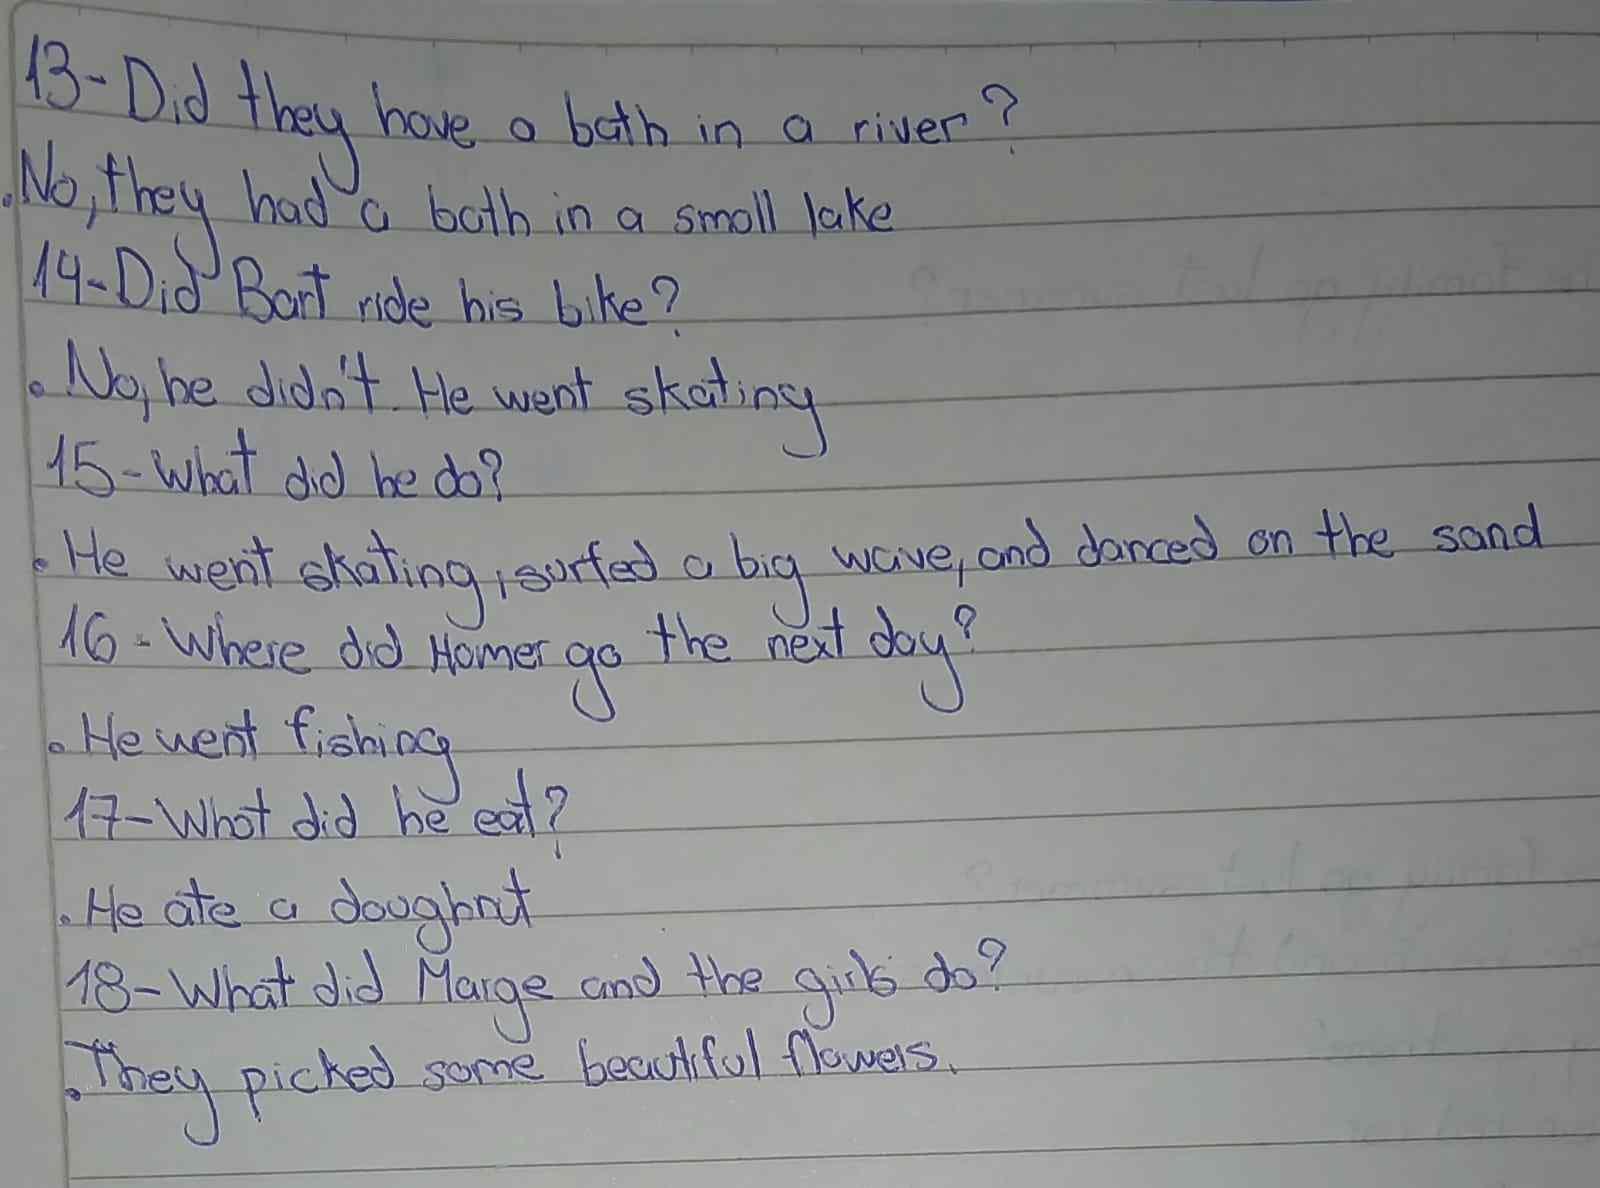 13-Did they have a bath in a river?
.No, they had a bath in a small lake
14-Did Bart ride his bike?
. No, he didn't. He went skating
15-What did he do?
. He went skating, surfed a big wave, and danced on the sand
16-Where did Homer go the next day?
. He went fishing
17-What did he eat?
. He ate a doughnut
18-What did Marge and the girls do?
. They picked some beautiful flowers.